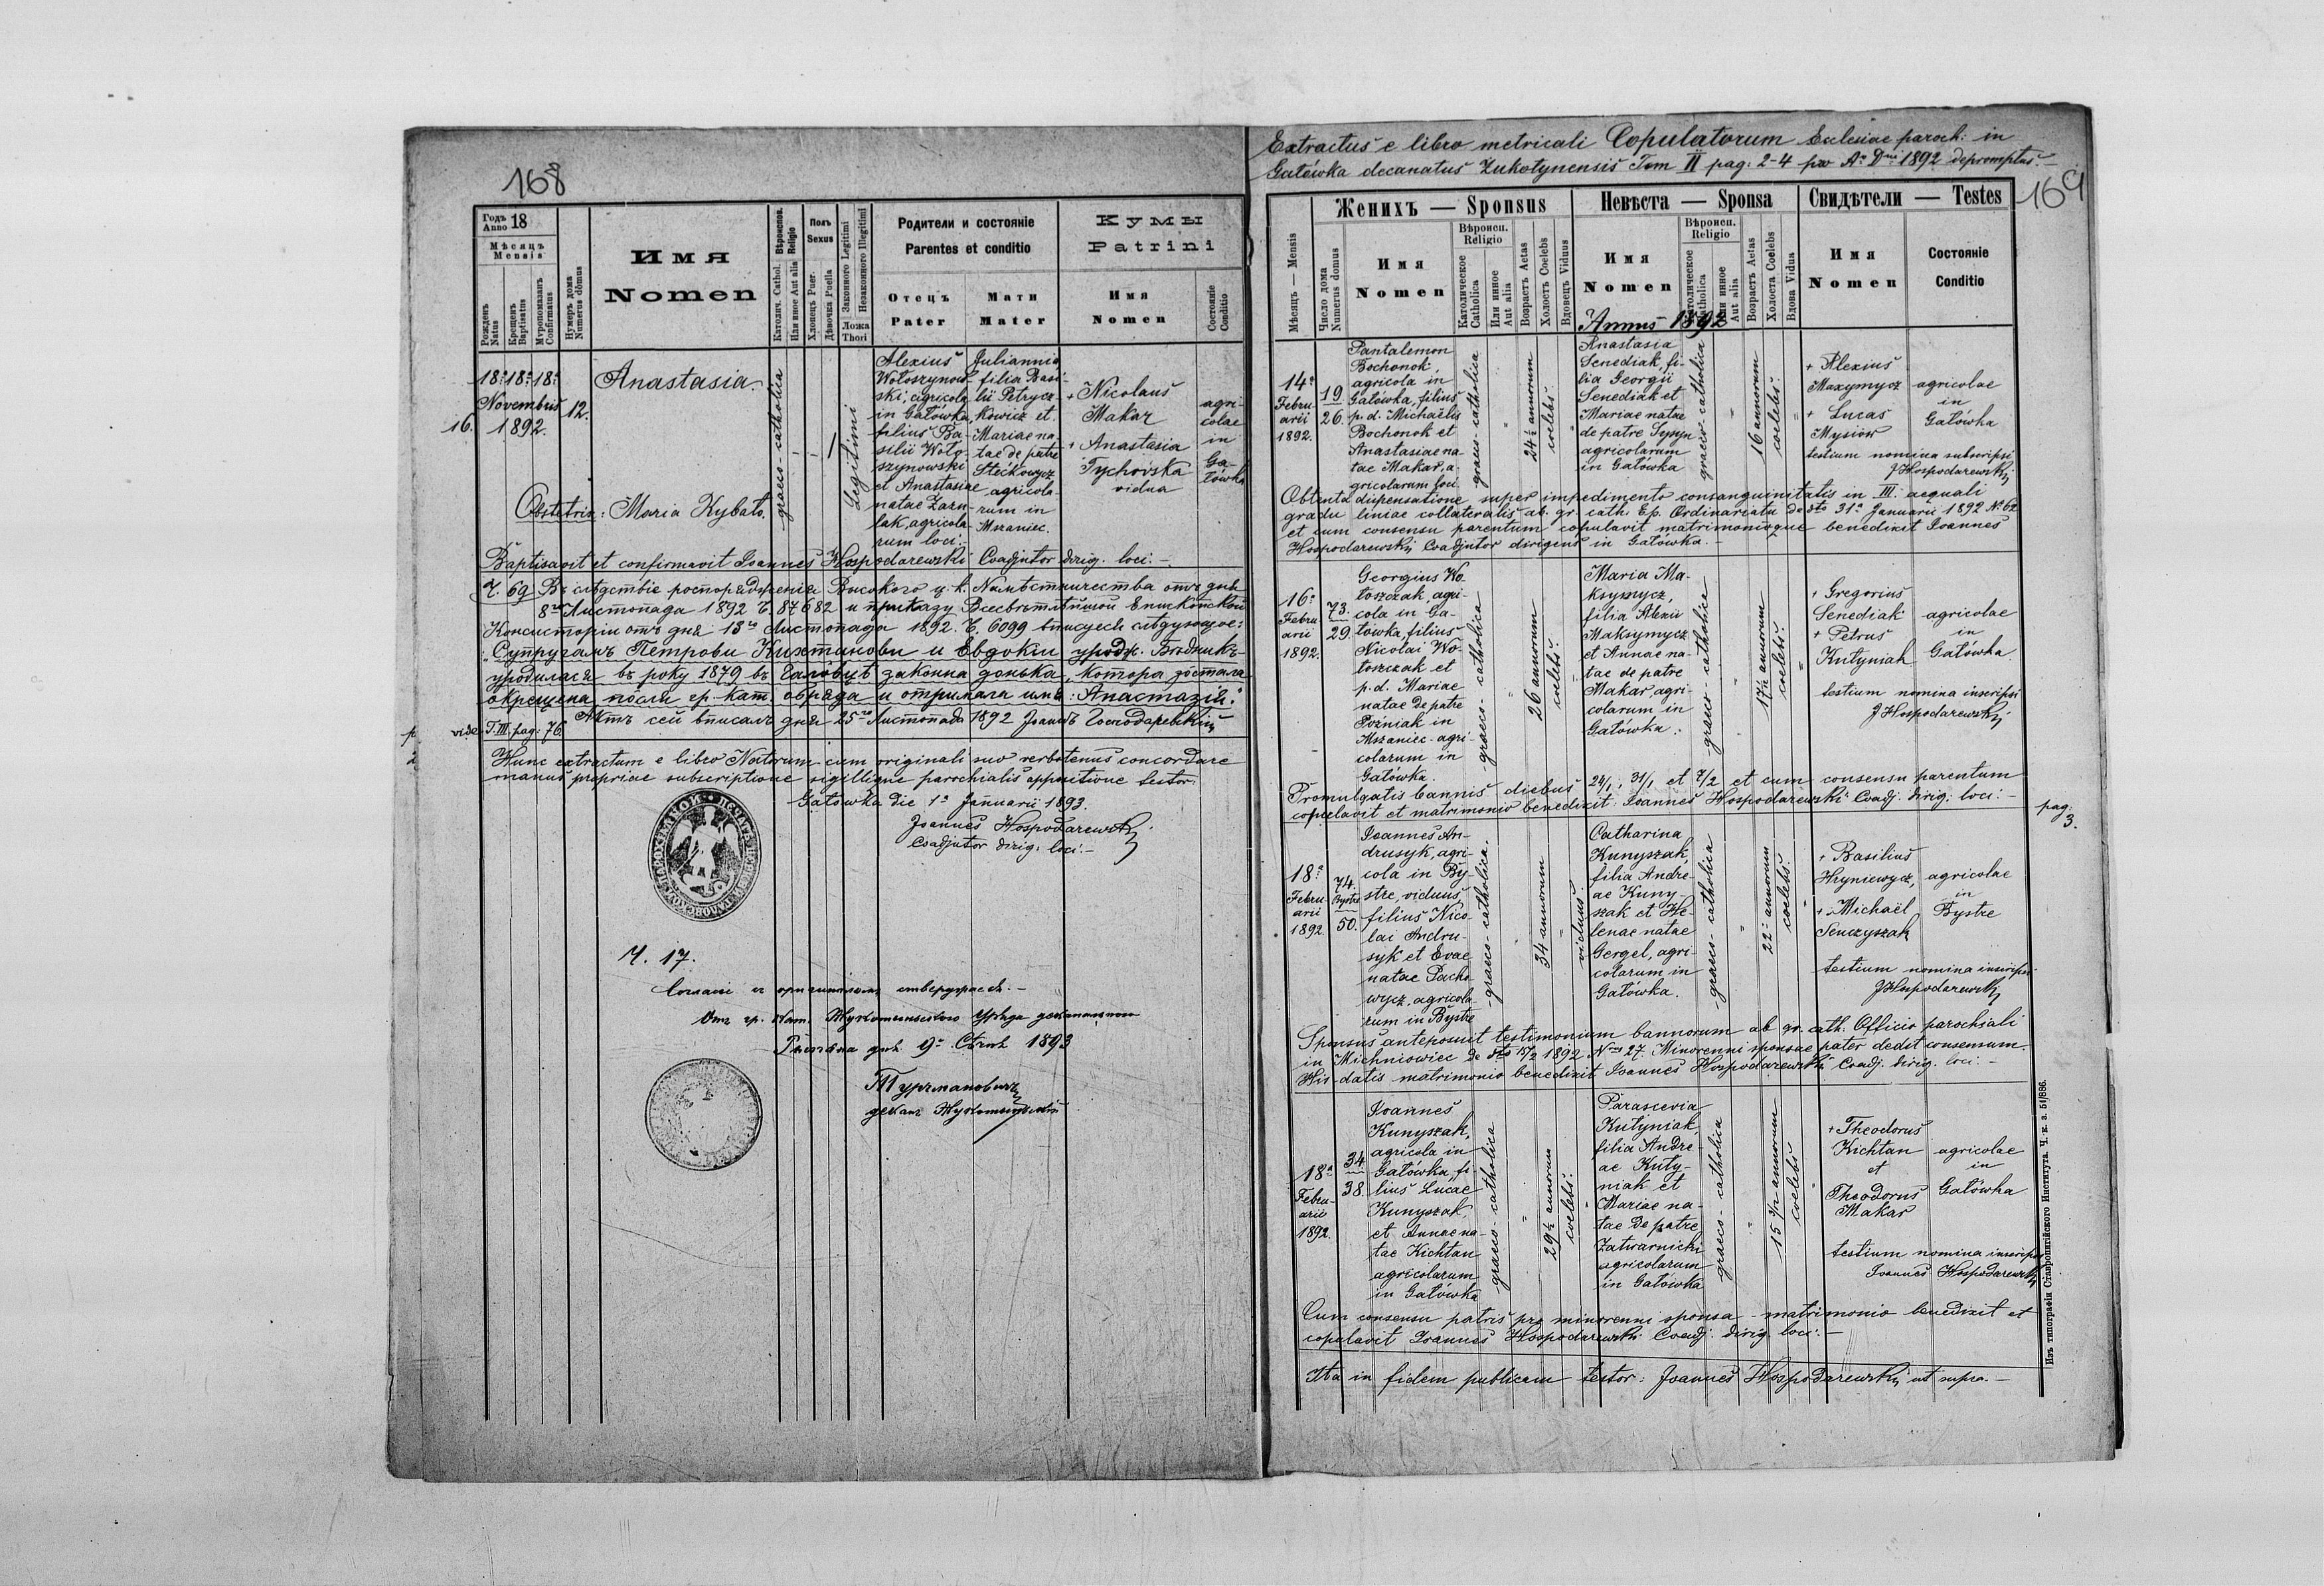 168
Годъ 18
Anno
Мѣсяцъ
Mensis
Рожденъ
Natus
Крещенъ
Baptisatus
Мѵропомазанъ
Confirmatus
Нумеръ дома
Numerus domus
Имя
Nomen
Вѣроиспов.
Religio
Католич. Cathol.
Или иное Aut alia
Полъ
Sexus
Хлопецъ Puer.
Дѣвочка Puella
Законного Legitimi
Незаконного Illegitimi
Ложа
Thori
Родители и состоянiе
Parentes et conditio
Отецъ
Pater
Мати
Mater
Кумы
Patrini
Имя
Nomen
Состоянiе
Conditio
16.
18ª 18ª 18ª
Novembris
1892.
12.
Anastasia.
graeco-catholica
–
–
1
Legitimi
Alexius
Wołoszynow-
ski, agricola
in Gałówka,
filius Ba-
silii Woło-
szynowski
et Anastasiae
natae Zaru-
lak, agricola-
rum loci.
Julianna
filia Basi-
lii Petrycz-
kowicz et
Mariae na-
tae de patre
Steckowycz
agricola-
rum in
Mszaniec.
+ Nicolaus
Makar
+ Anastasia
Tychovska
vidua
agri-
colae
in
Ga-
łówka
Obstetrix: Maria Kybało.
Baptisavit et confirmavit Joannes Hospodarewski Coadjutor dirig. loci.–
Ч. 69 Въ слѣдствіе розпорядженія Высокого ц. к. Намѣстничества отъ дня
8го Листопада 1892 Ч. 87682 и приказу Всесвѣтлѣйшои Епископскои
Консисторіи отъ дня 13го Листопада 1892. Ч. 6099 вписуеся слѣдующое:
„Супругамъ Петрови Кихтанови и Евдокіи урожд.
уродилася въ року 1879 въ Галôвцѣ законна донька, котора зôстала
окрещена пôсля гр. кат. обряда и отримала имя: Анастазія."
Актъ сей вписалъ дня 25го Листопада 1892 Іоаннъ Господаревскій
vide T. III. pag: 76.
Hunc extractum e libro Natorum cum originali suo verbotenus concordare
manus propriae subscriptione sigillique parochialis appositione testor.
Gałówka die 1ª Januarii 1893.
Joannes Hospodarewski
Coadjutor dirig: loci.–
Ч. 17.
Согласіе съ оригиналомъ стверджаеся.–
Отъ гр. кат. Жукотинського Уряда деканального
дня 9º Сѣчня 1893
Турчмановичъ
деканъ Жукотинскій
Extractus e libro metricali Copulatorum Ecclesiae paroch: in
Gałówka decanatus Żukotynensis Tom II pag: 2-4 pro Aº Dni 1892 depromptus.–
169
Женихъ — Sponsus
Невѣста — Sponsa
Свидѣтели — Testes
Мѣсяцъ — Mensis
Число дома
Numerus domus
Имя
Nomen
Вѣроисп.
Religio
Католическое
Catholica
Или инное
Aut alia
Возрастъ Aetas
Холостъ Coelebs
Вдовецъ Viduus
Имя
Nomen
Вѣроисп.
Religio
Католическое
Catholica
Или инное
Aut alia
Возрастъ Aetas
Холоста Coelebs
Вдова Vidua
Имя
Nomen
Состоянiе
Conditio
Annus 1892
14ª
Febru-
arii
1892.
19
26.
Pantalemon
Bochonok,
agricola in
Gałówka, filius
p. d. Michaëlis
Bochonok et
Anastasiae na-
tae Makar, a-
gricolarum loci
graeco-catholica
24½ annorum
coelebs.
Anastasia
Senediak, fi-
lia Georgii
Senediak et
Mariae natae
de patre Synyn
agricolarum
in Gałówka
graeco-catholica
16 annorum
coelebs.
+ Alexius
Maxymycz
+ Lucas
Mysiów
agricolae
in
Gałówka
testium nomina subscripsi
J Hospodarewski
Obtenta dispensatione super impedimento consanguinitatis in III. aequali
gradu liniae collateralis ab gr. cath. Ep. Ordinariatu de dto 31ª Januarii 1892 Nº 62
et cum consensu parentum copulavit matrimonioque benedixit Joannes
Hospodarewski Coadjutor dirigens in Gałówka.–
16ª
Febru-
arii
1892.
73.
29.
Georgius Wo-
łoszczak, agri-
cola in Ga-
łówka, filius
Nicolai Wo-
łoszczak et
p. d. Mariae
natae de patre
Poźniak in
Mszaniec agri-
colarum in
Gałówka.
graeco-catholica
26 annorum
coelebs.
Maria Ma-
ksymycz,
filia Alexii
Maksymycz
et Annae na-
tae de patre
Makar, agri-
colarum in
Gałówka.
graeco-catholica
17½ annorum
coelebs.
+ Gregorius
Senediak
+ Petrus
Kutyniak
agricolae
in
Gałówka.
testium nomina inscripsi
J Hospodarewski
Promulgatis bannis diebus 24/1, 31/1 et 7/2 et cum consensu parentum
copulavit et matrimonio benedixit Joannes Hospodarewski Coadj. dirig: loci.–
pag:
3.
18ª
Febru-
arii
1892.
74.
Bystre
50.
Joannes An-
drusyk, agri-
cola in By-
stre, viduus,
filius Nico-
lai Andru-
syk et Evae
natae Pacho-
wycz, agricola-
rum in Bystre
graeco-catholica.
34 annorum
viduus
Catharina
Kunyszak,
filia Andre-
ae Kuny-
szak et He-
lenae natae
Gergel, agri-
colarum in
Gałówka.
graeco-catholica
22 annorum
coelebs.
+ Basilius
Hryniewycz,
+ Michaël
Senczyszak
agricolae
in
Bystre
testium nomina inscripsi
J Hospodarewski
Sponsus anteposuit testimonium bannorum ab gr. cath. Officio parochiali
in Michniowiec de dto 15/2 1892 Nro 27. Minorenni sponsae pater dedit consensum.
His datis matrimonio benedixit Joannes Hospodarewski Coadj. dirig. loci.–
18ª
Febru-
arii
1892.
34
38.
Joannes
Kunyszak,
agricola in
Gałówka, fi-
lius Lucae
Kunyszak
et Annae na-
tae Kichtan
agricolarum
in Gałówka
graeco-catholica
29½ annorum
coelebs.
Parascevia
Kutyniak,
filia Andre-
ae Kuty-
niak et
Mariae na-
tae de patre
Zatwarnicki
agricolarum
in Gałówka
graeco-catholica
annorum
coelebs
+ Theodorus
Kichtan
et
Theodorus
Makar
agricolae
in
Gałówka
testium nomina inscripsi
Joannes Hospodarewski
Cum consensu patris pro minorenni sponsa matrimonio benedixit et
copulavit Joannes Hospodarewski Coadj. dirig. loci.–
Ita in fidem publicam testor: Joannes Hospodarewski ut supra.–
Изъ типографiи Ставропигiйского Института. Ч. к. з. 51/886.